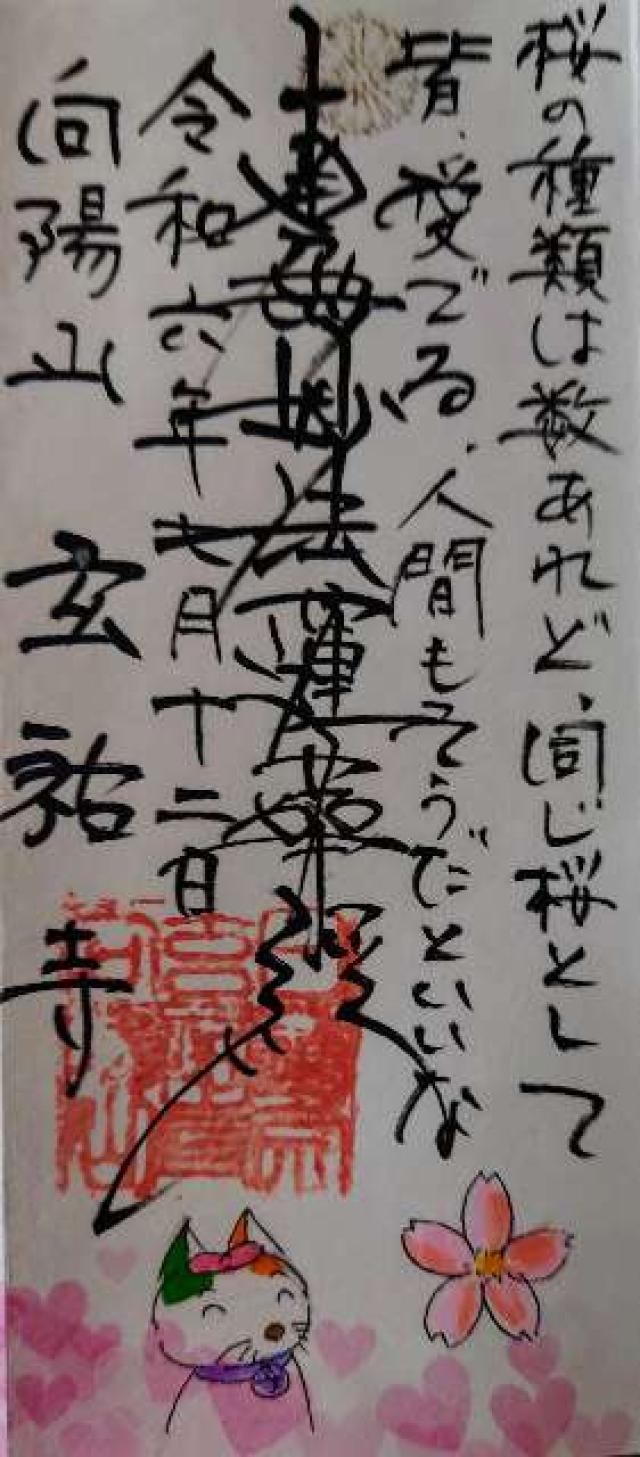 桜の種類は数あれど、同じ桜として
皆、愛でる、人間もそうだといいな
南無妙法蓮華経
令和六年七月十二日
向陽山 玄祐寺